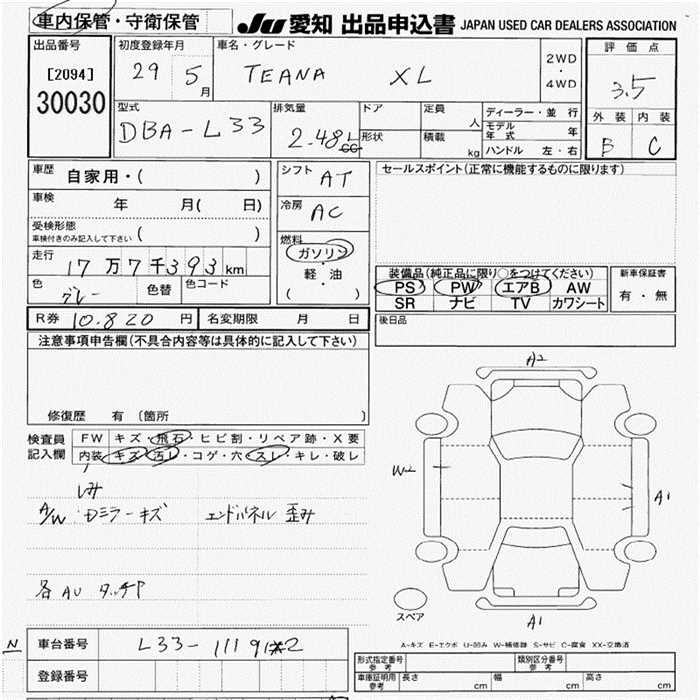 車内保管・守衛保管
JU 愛知 出品申込書 JAPAN USED CAR DEALERS ASSOCIATION
出品番号 初度登録年月 車名・グレード 評価点
[2094] 29 5月 TEANA XL 2WD・4WD 3.5
30030
型式 排気量 ドア 定員 人 ディーラー・並行 外装 内装
DBA-L33 2.48L cc 形状 積載 kg モデル年式 年 B C
ハンドル 左・右
車歴 自家用・( ) シフト AT セールスポイント(正常に機能するものに限ります)
車検 年 月( 日) 冷房 AC
受検形態
車検付きのみ記入して下さい ( )
燃料 ガソリン
走行 17万7千393km 軽・油
( ・ )
装備品(純正品に限り○をつけてください) 新車保証書
PS PW エアB AW 有・無
SR ナビ TV カワシート
色 グレー 色替 色コード
R券 10.820円 名変期限 月 日 後日品
注意事項申告欄(不具合内容等は具体的に記入して下さい)
修復歴 有 (箇所 )
検査員 FW キズ・飛石・ヒビ割・リペア跡・X要
記入欄 内装 キズ・汚レ・コゲ・穴・スレ・キレ・破レ
シミ
A/W・Dミラーキズ エンドパネル 歪み
各AU タッチP
A2
W2
A1
スペア
A1
A-キズ E-エクボ U-凹み W-補修跡 S-サビ C-腐食 XX-交換済
N 車台番号 L33-111912
登録番号
形式指定番号 参考 類別区分番号 参考
車庫証明用 参考 長さ cm 幅 cm 高さ cm